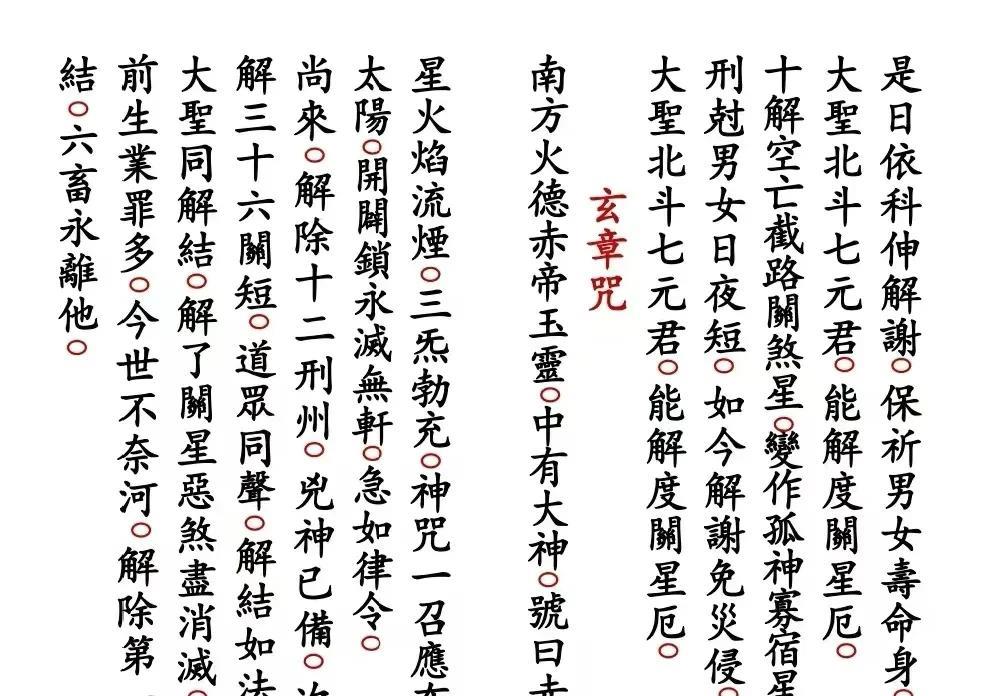 是日依科伸解謝○保祈男女壽命身
大聖北斗七元君○能解度關星厄○
十解空亡截路關煞星○變作孤神寡宿星
刑尅男女日夜短○如今解謝免災侵○
大聖北斗七元君○能解度關星厄○
玄章咒
南方火德赤帝玉靈○中有大神○號曰赤
星火焰流煙○三炁勃充○神咒一召應
太陽○開闢鎖永滅無軒○急如律令○
尚來○解除十二刑州○兇神已備○次
解三十六關短○道眾同聲○解結如法
大聖同解結○解了關星惡煞盡消滅○
前生業罪多○今世不奈河○解除第
結○六畜永離他○